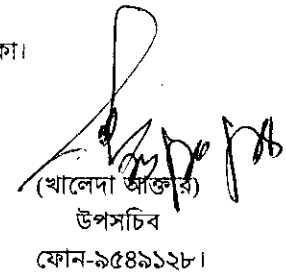 কা।
(খালেদা আক্তার)
উপসচিব
ফোন-৯৫৪৯১২৮।